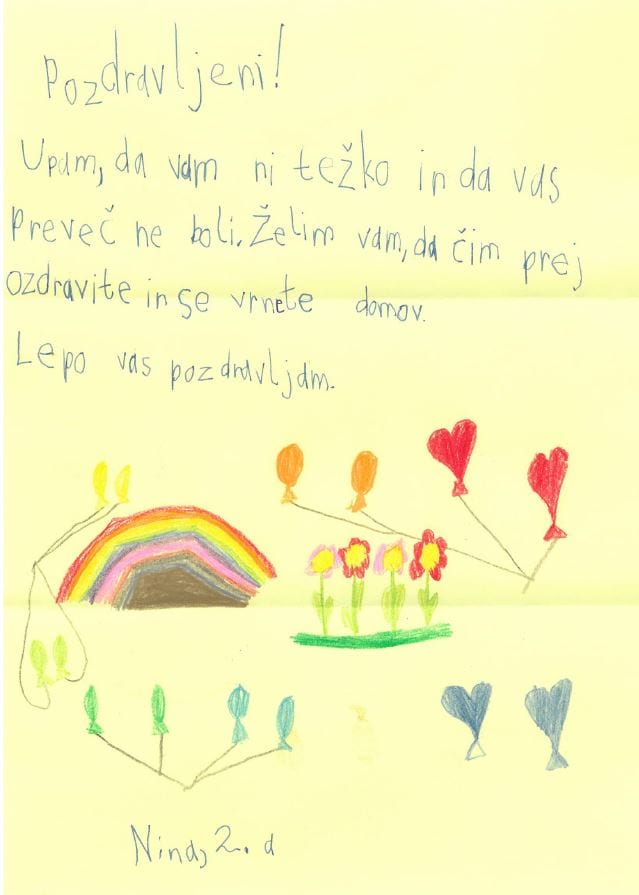 Pozdravljeni!
Upam, da vam ni težko in da vas
preveč ne boli. Želim vam, da čim prej
ozdravite in se vrnete domov.
Lepo vas pozdravljam.
Nina, 2. d